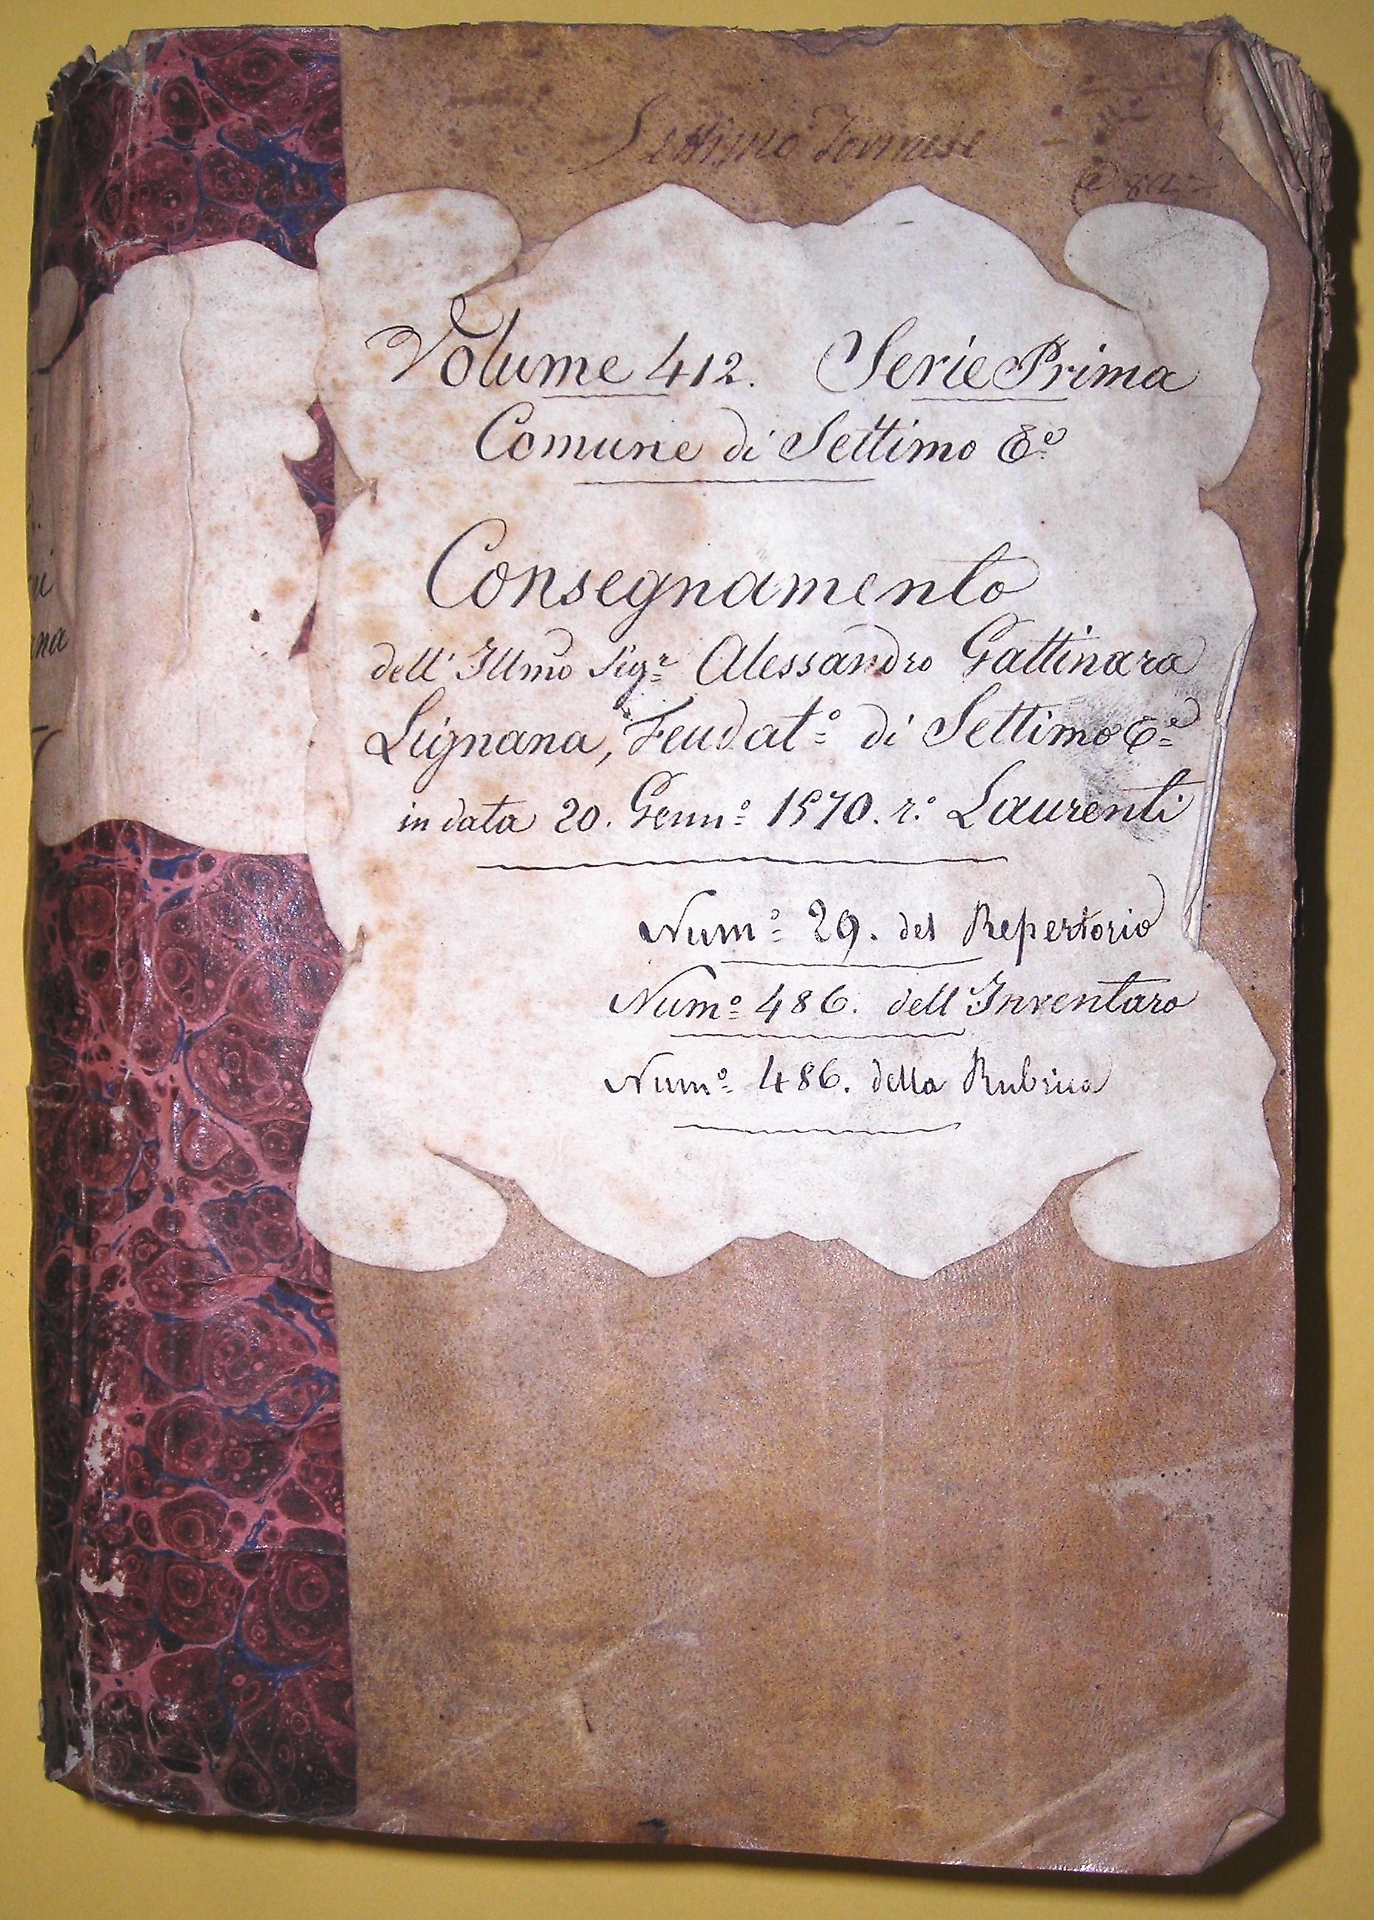 Settimo Torinese
Volume 412. Serie Prima
Comune di Settimo Tº
Consegnamento
dell' Illmo Sigr Alessandro Gattinara
Lignana, Feudatº di Settimo Tº
in data 20. Gennº 1570. rº Laurenti
Numº 29. del Repertorio
Numº 486. dell'Inventaro
Numº 486. della Rubrica